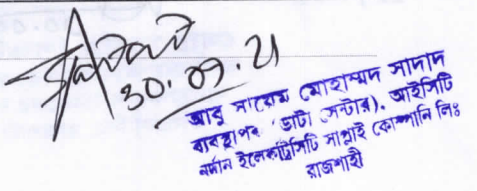 30.09.21
আবু সায়েম মোহাম্মদ সাদাদ
ব্যবস্থাপক (ডাটা সেন্টার), আইসিটি
নর্দান ইলেকট্রিসিটি সাপ্লাই কোম্পানি লিঃ
রাজশাহী